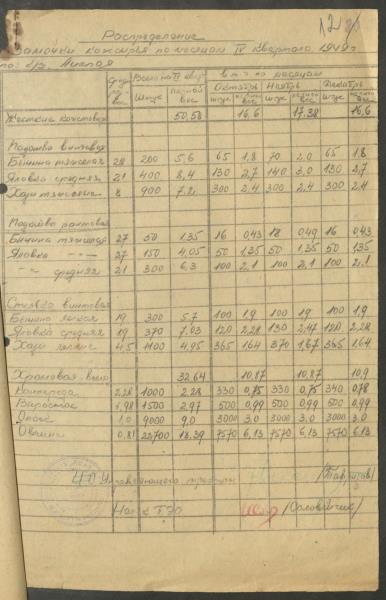 12
Распределение
замочки кожсырья по месяцам IV квартала 1949 г.
по
Всего на IV кварт. в т. ч. по месяцам
Октябрь Ноябрь Декабрь
штук вес штук вес штук вес штук вес
Жесткие кожтовар 50,58 16,6 17,38 16,6
винтовая
Бычина тяжелая 28 200 5,6 65 1,8 70 2,0 65 1,8
Яловка средняя 21 400 8,4 130 2,7 140 3,0 130 2,7
тяжелые 8 900 7,2 300 2,4 300 2,4 300 2,4
рантовая
Бычина тяжелая 27 50 1,35 16 0,43 18 0,49 16 0,43
Яловка —"— 27 150 4,05 50 1,35 50 1,35 50 1,35
—"— средняя 21 300 6,3 100 2,1 100 2,1 100 2,1
Стелька винтовая
Бычина легкая 19 300 5,7 100 1,9 100 1,9 100 1,9
Яловка средняя 19 370 7,03 120 2,28 130 2,47 120 2,28
легкие 4,5 1100 4,95 365 1,64 370 1,67 365 1,64
Хромовая 32,64 10,87 10,87 10,9
2,28 1000 2,28 330 0,75 330 0,75 340 0,78
Выросток 1,98 1500 2,97 500 0,99 500 0,99 500 0,99
Опоек 1,0 9000 9,0 3000 3,0 3000 3,0 3000 3,0
Овчина 0,81 22700 18,39 7570 6,13 7570 6,13 7570 6,13
Управляющего трестом
Нач-к ПЭО